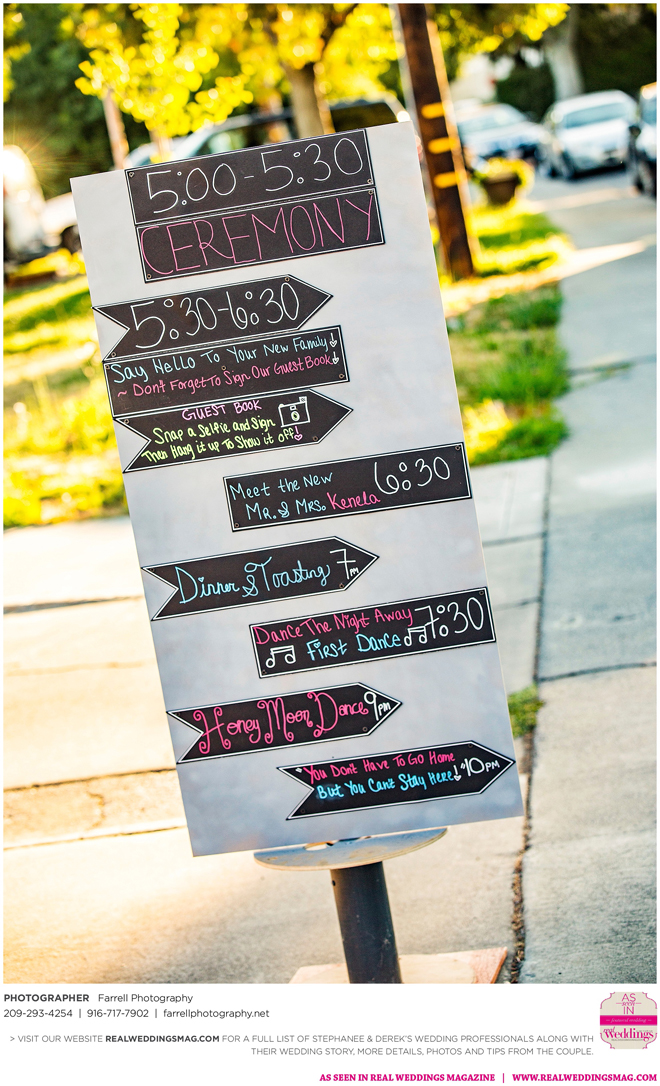 5:00-5:30
CEREMONY
5:30-6:30
Say Hello To Your New Family
~ Don't Forget To Sign Our Guest Book
GUEST BOOK
Snap a Selfie and Sign
Then Hang it up To Show it off!
Meet the New
Mr. & Mrs. Kenela
6:30
Dinner & Toasting 7 PM
Dance The Night Away
First Dance
7:30
Honey Moon Dance 9 PM
"You Don't Have To Go Home
But You Can't Stay Here!"
10 PM
PHOTOGRAPHER Farrell Photography
209-293-4254 | 916-717-7902 | farrellphotography.net
> VISIT OUR WEBSITE REALWEDDINGSMAG.COM FOR A FULL LIST OF STEPHANEE & DEREK'S WEDDING PROFESSIONALS ALONG WITH
THEIR WEDDING STORY, MORE DETAILS, PHOTOS AND TIPS FROM THE COUPLE.
AS
seen
IN
real
Weddings
AS SEEN IN REAL WEDDINGS MAGAZINE | WWW.REALWEDDINGSMAG.COM